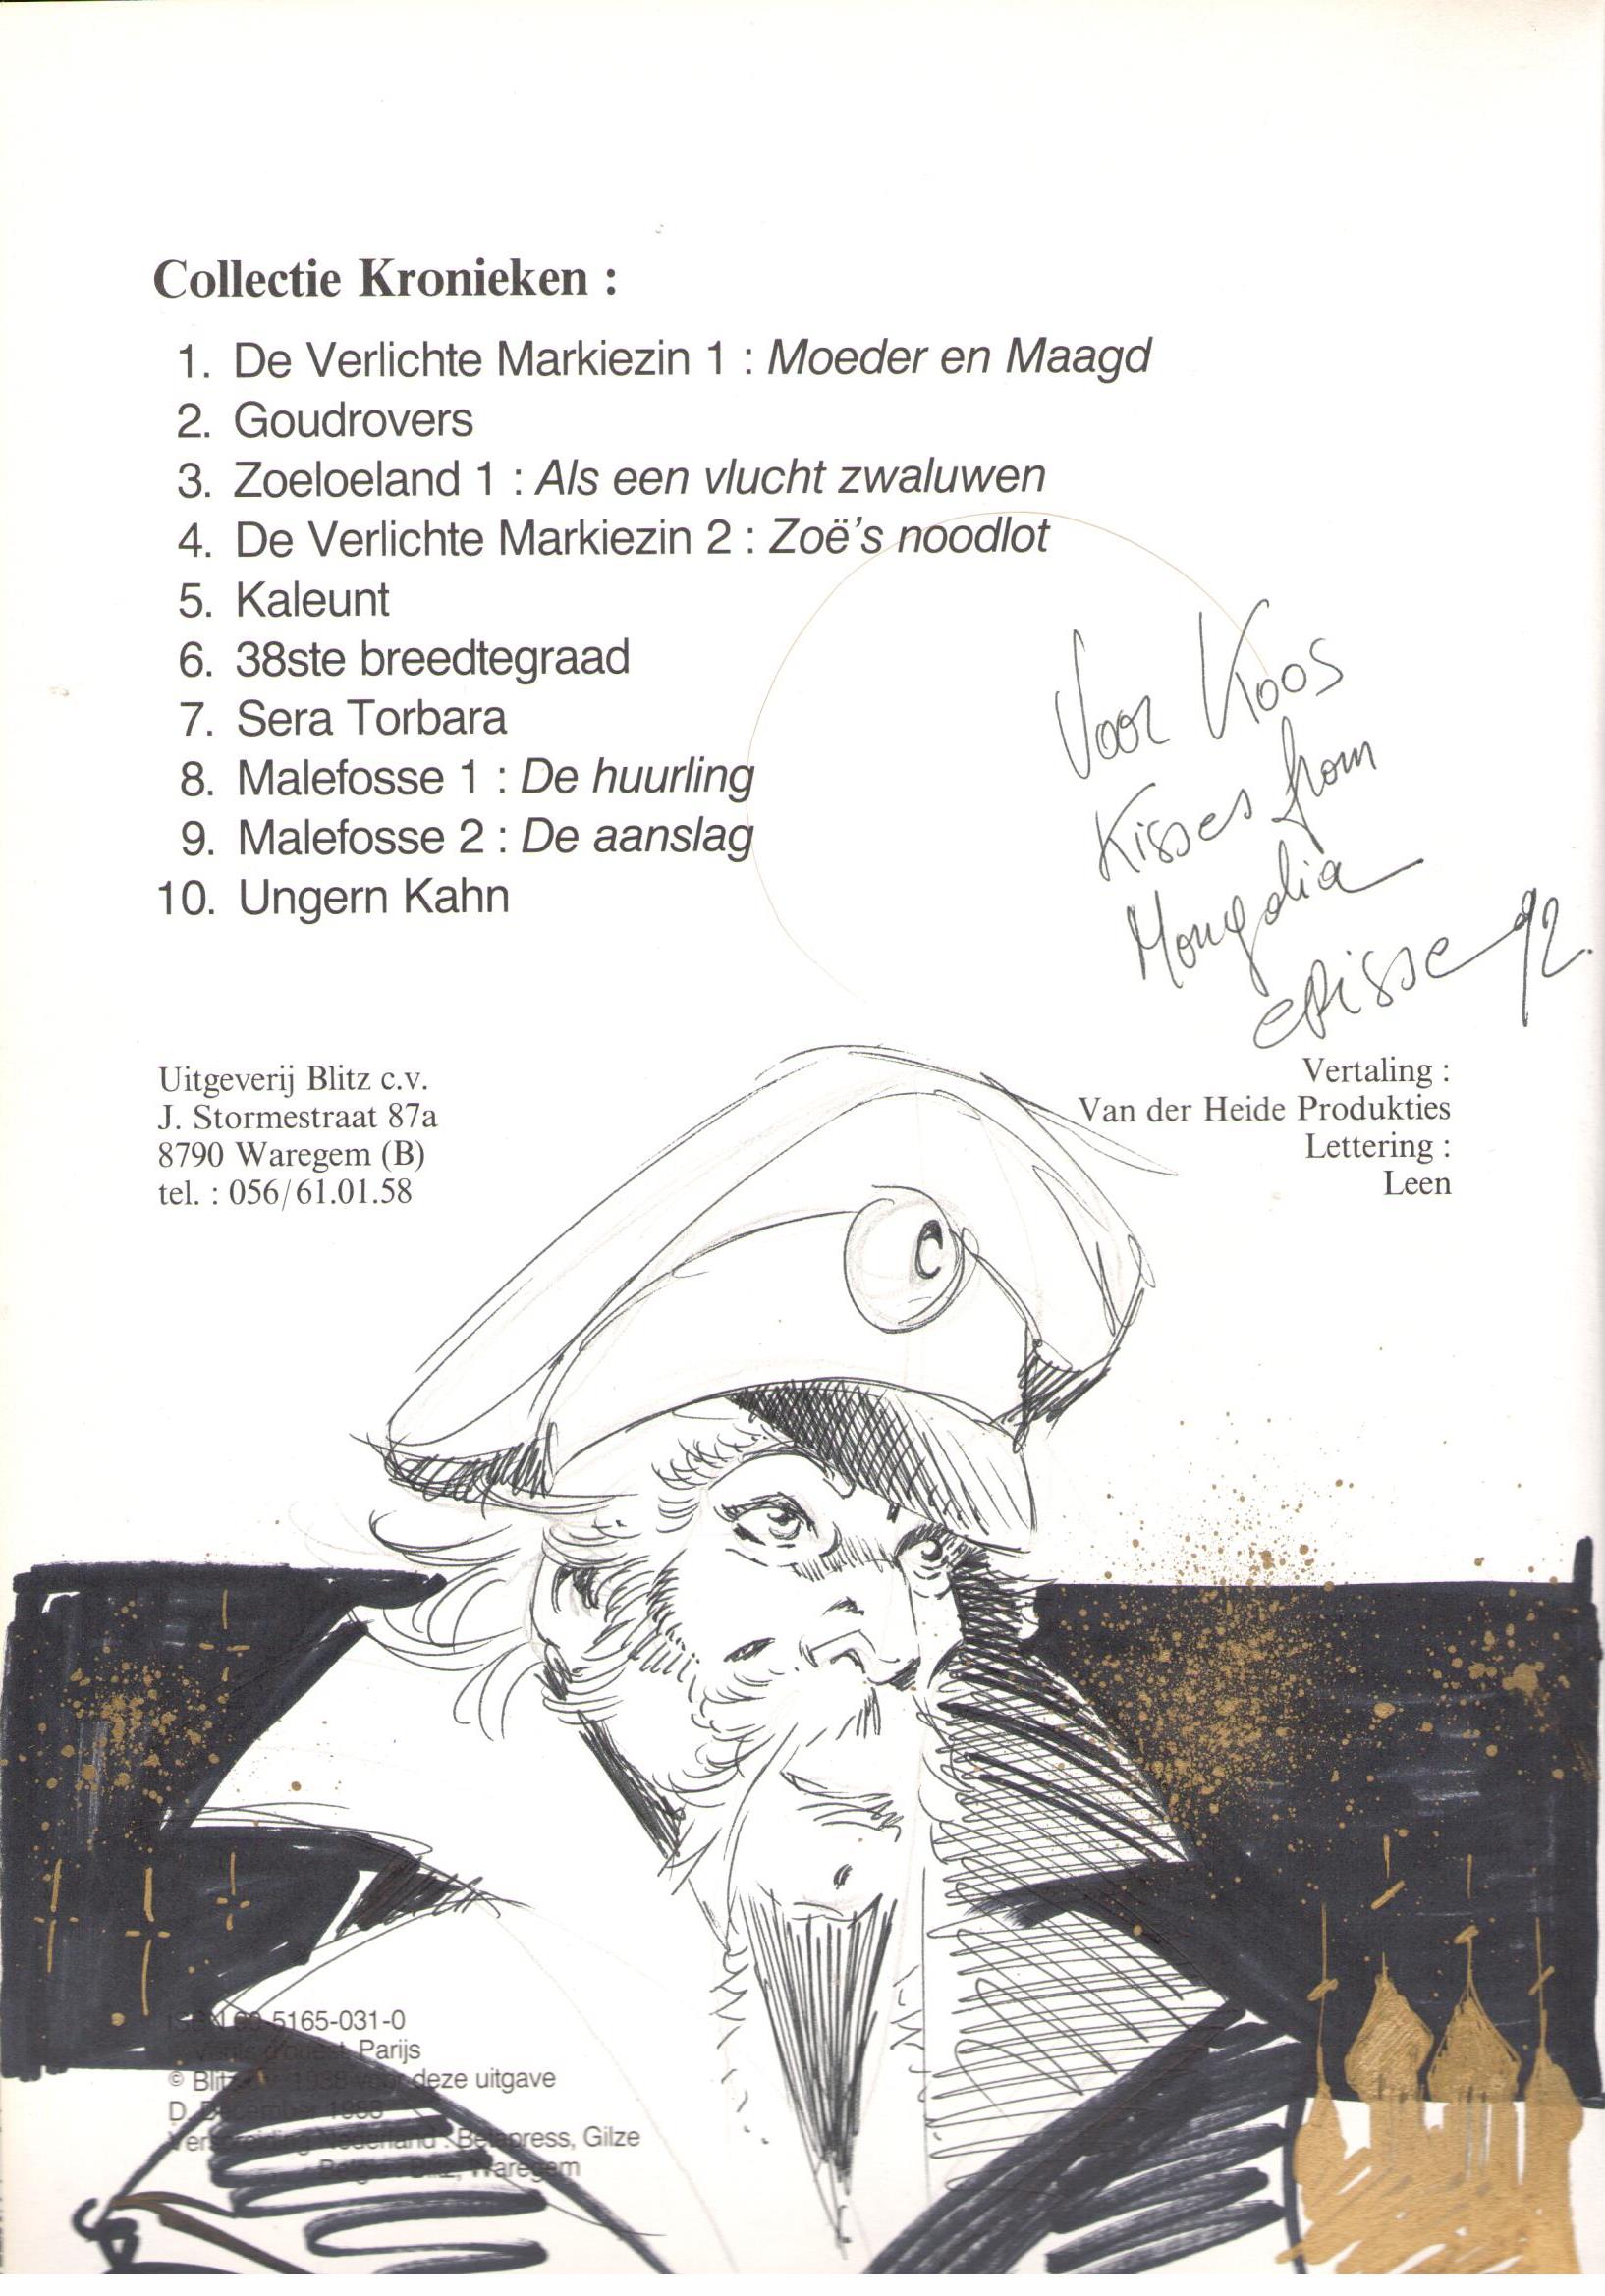 Collectie Kronieken :
1. De Verlichte Markiezin 1 : Moeder en Maagd
2. Goudrovers
3. Zoeloeland 1 : Als een vlucht zwaluwen
4. De Verlichte Markiezin 2 : Zoë's noodlot
5. Kaleunt
6. 38ste breedtegraad
7. Sera Torbara
8. Malefosse 1 : De huurling
9. Malefosse 2 : De aanslag
10. Ungern Kahn
Voor Koos
Kisses from
Mongolia
92.
Uitgeverij Blitz c.v.
J. Stormestraat 87a
8790 Waregem (B)
tel. : 056/61.01.58
Vertaling :
Van der Heide Produkties
Lettering :
Leen
C
5165-031-0
Parijs
© Blitz voor deze uitgave
D. December
Verspreiding Nederland : Betapress, Gilze
België : Blitz, Waregem